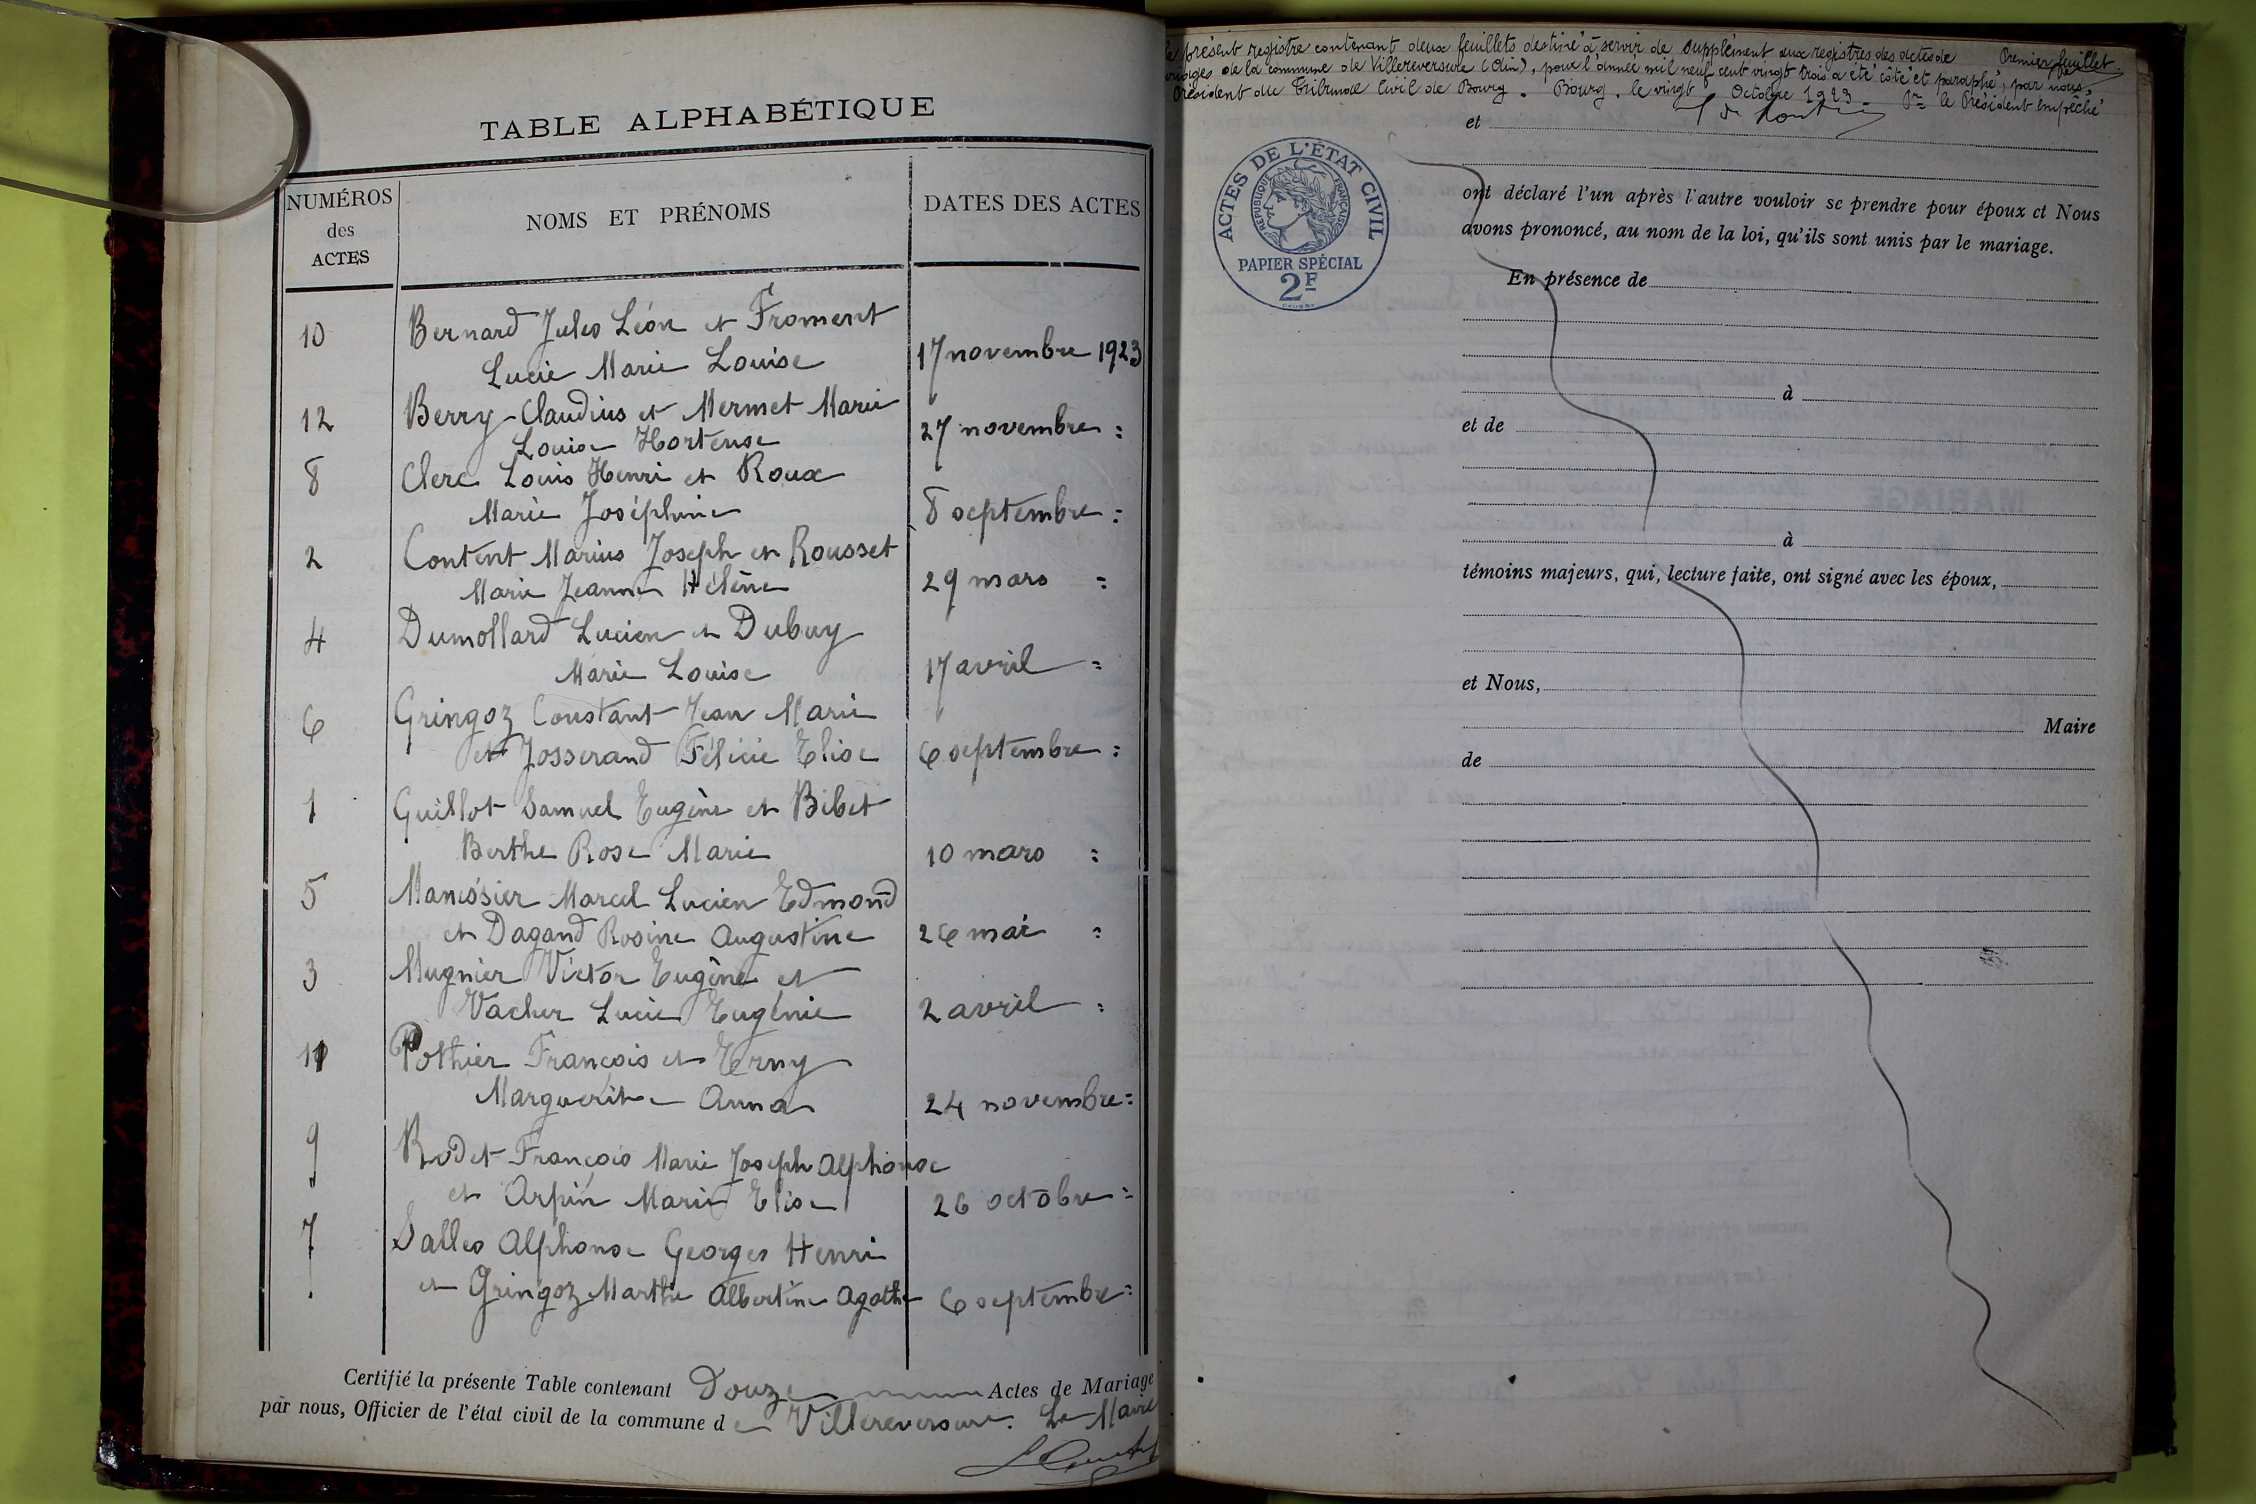 TABLE ALPHABÉTIQUE
NUMÉROS des ACTES
NOMS ET PRÉNOMS
DATES DES ACTES
10 Bernard Jules Léon et Froment
Lucie Marie Louise 17 novembre 1923
12 Berry Claudius et Mermet Marie
Louise Hortense 27 novembre =
8 Clerc Louis Henri et Roux
Marie Joséphine 8 septembre =
2 Content Marius Joseph et Rousset
Marie Jeanne Hélène 29 mars =
4 Dumollard Lucien et Dubuy
Marie Louise 17 avril =
6 Gringoz Constant Jean Marie
et Josserand Félicie Elise 6 septembre =
1 Guillot Samuel Eugène et Bibet
Berthe Rose Marie 10 mars =
5 Marcel Lucien Edmond
et Dagand Rosine Augustine 26 mai =
3 Mugnier Victor Eugène et
Vacher Lucie Eugénie 2 avril =
11 Pothier François et Erny
Marguerite Anna 24 novembre =
9 Rodet François Marie Joseph Alphonse
et Arpin Marie Elise 26 octobre =
7 Salles Alphonse Georges Henri
et Gringoz Marthe Albertine Agathe 6 septembre =
Certifié la présente Table contenant Douze Actes de Mariage
par nous, Officier de l'état civil de la commune de Villereversure. Le Maire
présent registre contenant deux feuillets destiné à servir de supplément aux registres des actes de Premier feuillet
mariages de la commune de Villereversure (Ain), pour l'année mil neuf cent vingt trois a été côté et paraphé, par nous,
Président du Tribunal Civil de Bourg. Bourg, le vingt Octobre 1923. Pr le Président empêché
ACTES DE L'ÉTAT CIVIL
RÉPUBLIQUE FRANÇAISE
PAPIER SPÉCIAL
2F
et
ont déclaré l'un après l'autre vouloir se prendre pour époux et Nous
avons prononcé, au nom de la loi, qu'ils sont unis par le mariage.
En présence de
à
et de
à
témoins majeurs, qui, lecture faite, ont signé avec les époux,
et Nous,
Maire
de